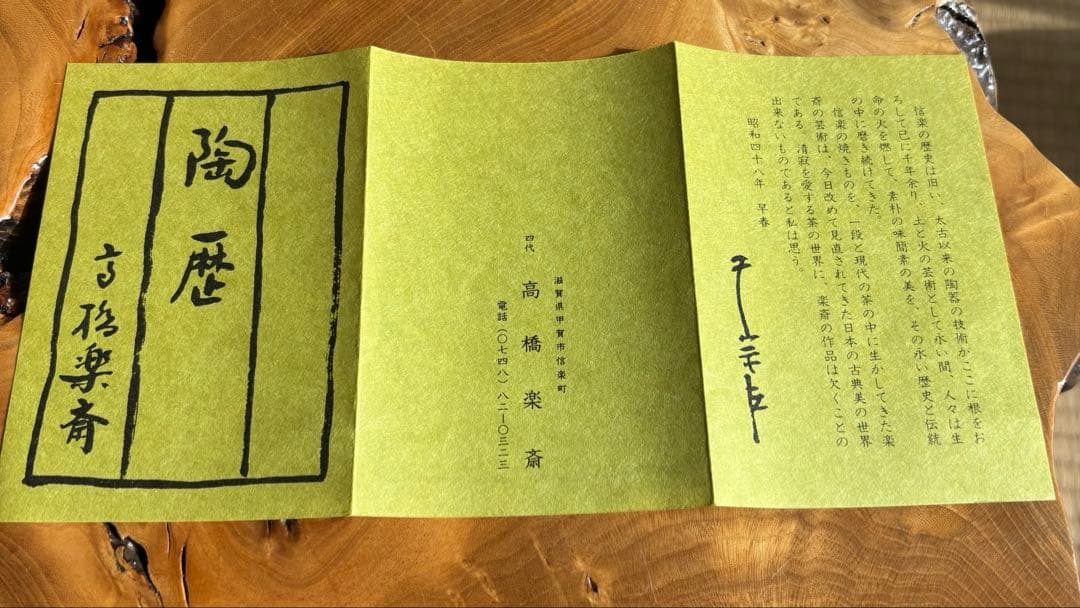 信楽の歴史は旧い、太古以来の陶器の技術がここに根をお
ろして已に千年余り、土と火の芸術として永い間、人々は生
命の火を燃して、素朴の味簡素の美を、その永い歴史と伝統
の中に磨き続けてきた。
信楽の焼きものを、一段と現代の茶の中に生かしてきた楽
斎の芸術は、今日改めて見直されてきた日本の古典美の世界
である。清寂を愛する茶の世界に、楽斎の作品は欠くことの
出来ないものであると私は思う。
昭和四十八年 早春
滋賀県甲賀市信楽町
四代 高橋楽斎
電話(〇七四八)八二-〇三二三
陶歴
高橋楽斎